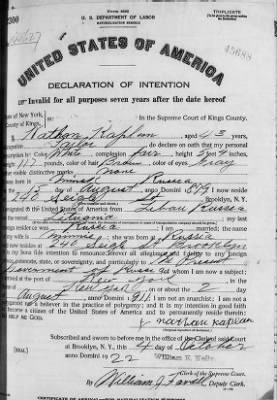 TRIPLICATE
U. S. DEPARTMENT OF LABOR
NATURALIZATION SERVICE
UNITED STATES OF AMERICA
DECLARATION OF INTENTION
Invalid for all purposes seven years after the date hereof
State of New York,
County of Kings,
In the Supreme Court of Kings County.
I, Nathan Kaplan, aged 43 years,
occupation Tailor, do declare on oath that my personal
description is: Color White, complexion fair, height 5 feet 4 inches,
weight 117 pounds, color of hair Brown, color of eyes Gray
other visible distinctive marks none
I was born in Russia
on the 15 day of August, anno Domini 1879; I now reside
at 240 Seigel St, Brooklyn, N.Y.
I emigrated to the United States of America from Libau Russia
on the vessel Lituania
; my last
foreign residence was Russia; I am married; the name
of my wife is Minnie; she was born at Russia
and now resides at 240 Seigel St Brooklyn
It is my bona fide intention to renounce forever all allegiance and fidelity to any foreign
prince, potentate, state, or sovereignty, and particularly to The Present
Government of Russia of whom I am now a subject;
I arrived at the port of New York, in the
State of New York, on or about the 2 day
of August, anno Domini 1911; I am not an anarchist; I am not a
polygamist nor a believer in the practice of polygamy; and it is my intention in good faith
to become a citizen of the United States of America and to permanently reside therein:
SO HELP ME GOD.
Nathan Kaplan
Subscribed and sworn to before me in the office of the Clerk of said Court
at Brooklyn, N.Y., this 4 day of October
anno Domini 1922
[SEAL]
William E. Kelly
Clerk of the Supreme Court.
By William J. Farrell, Deputy Clerk.